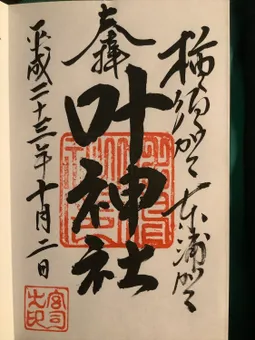 横須賀々東浦賀々
奉拝
叶神社
平成二十三年十月二日
宮司之印